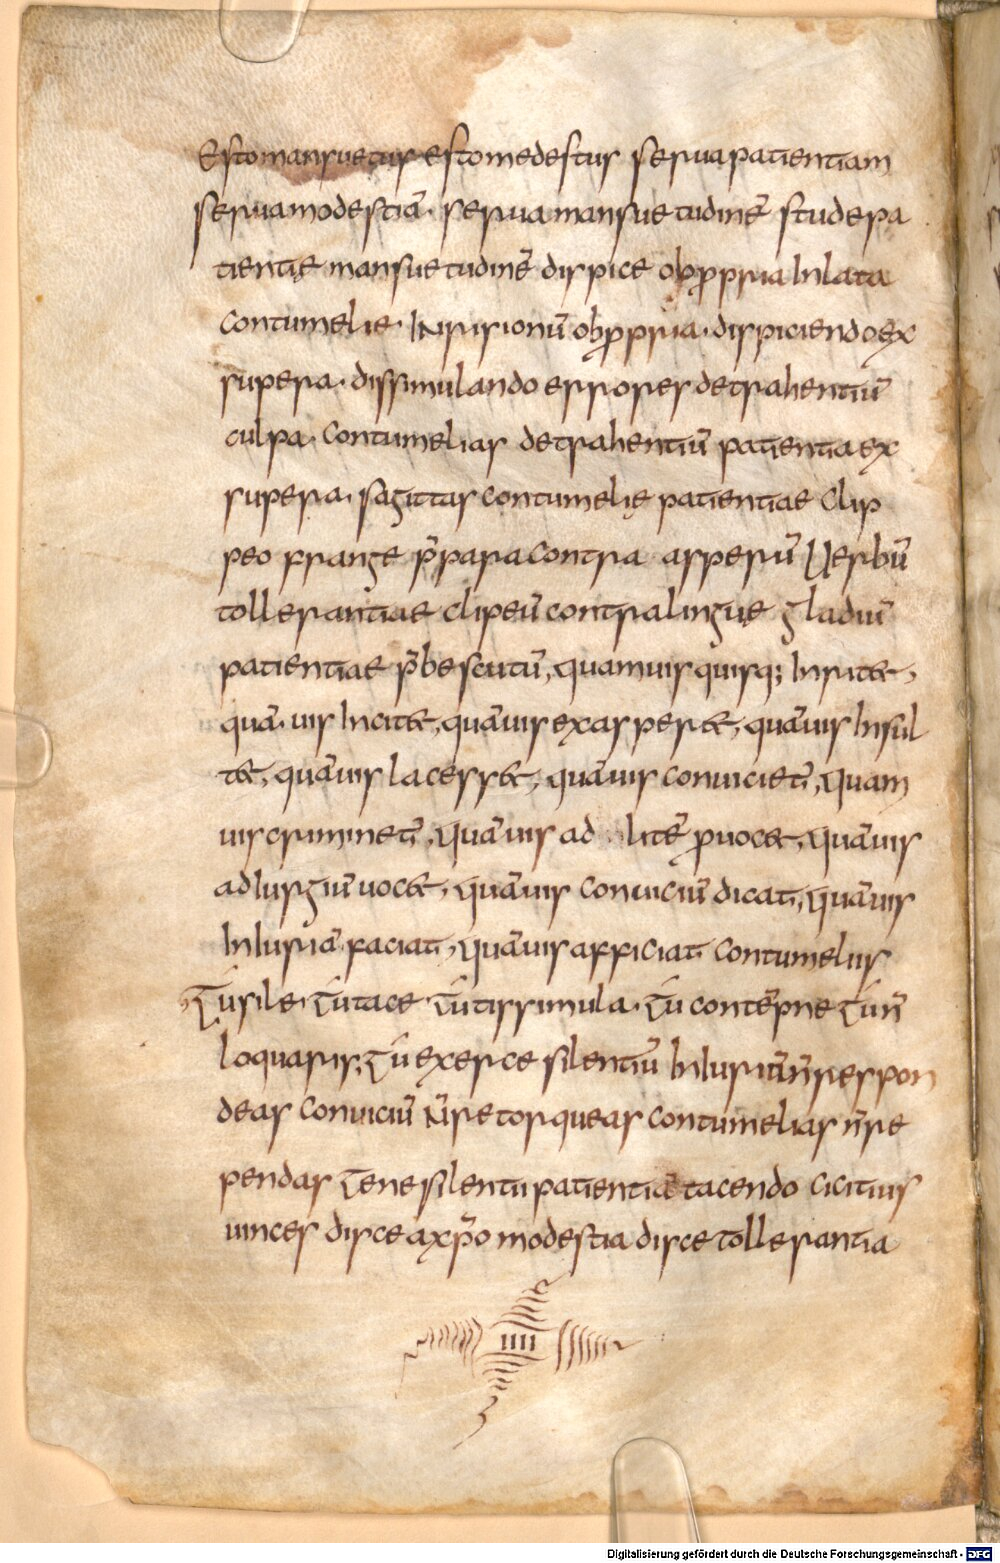 Esto mansuetus esto medestus serua patientiam
serua modestiā· serua mansuetudinē stude pa
tientię mansuetudinē dispice obpropria Inlata
contumelie· Inrisionū obpropria· dispiciendo ex
supera· dissimulando errores detrahentiū
culpa· contumelias detrahentiū patientia ex
supera· sagittas contumelię patientiae clip
peo frange p̄para contra asperū Uerbū
tollerantiae clipeū contra lingue gladiū
patientiae p̄be scutū, quamuis quisq; Inrit&,
quā·uis Incit&, quāuis exasper&, quāuis Insul
t&, quāuis lacess&, quāuis conuiciet̄, quam
uis criminet̄, quāuis ad litē prouoc&, quāuis
ad Iurgiū uoc&, quāuis conuiciū dicat, quāuis
Iniuriā faciat, quāuis afficiat contumeliis
Tu sile· Tu tace· Tu tissimula· Tu contēpne Tu n̄
loquaris; Tu exerce silentiū Iniuriū n̄ respon
deas conuiciū n̄ retorqueas contumelias n̄ re
pendas Tene silentii patientiā tacendo cicitius
uinces disce a xp̄o modestia disce tollerantia
IIII
Digitalisierung gefördert durch die Deutsche Forschungsgemeinschaft - DFG